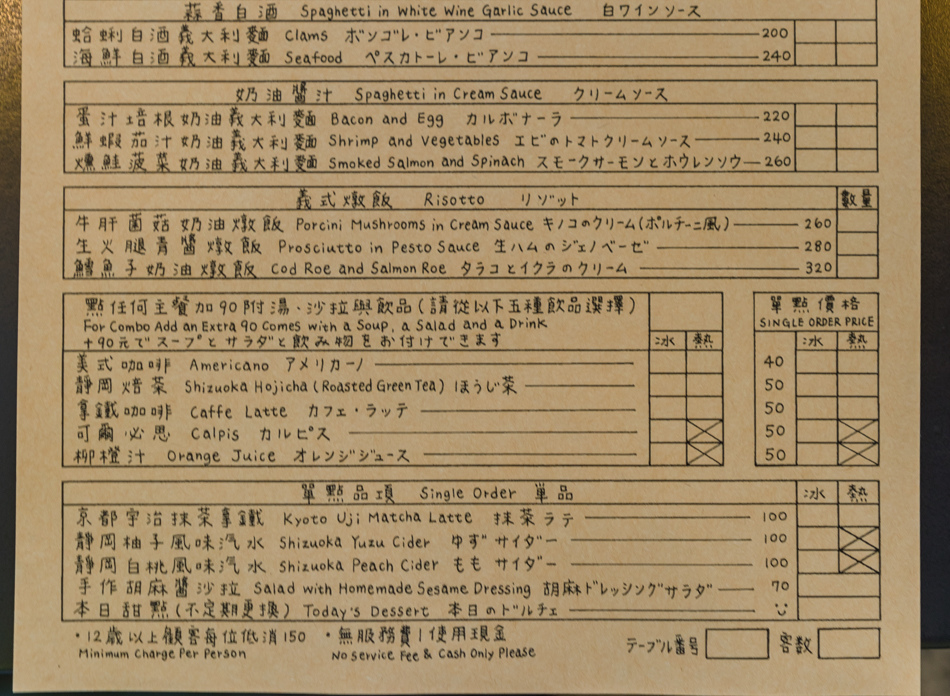 蒜香白酒 Spaghetti in White Wine Garlic Sauce 白ワインソース
蛤蜊白酒義大利麵 Clams ボンゴレ・ビアンコ 200
海鮮白酒義大利麵 Seafood ペスカトーレ・ビアンコ 240
奶油醬汁 Spaghetti in Cream Sauce クリームソース
蛋汁培根奶油義大利麵 Bacon and Egg カルボナーラ 220
鮮蝦茄汁奶油義大利麵 Shrimp and Vegetables エビのトマトクリームソース 240
燻鮭菠菜奶油義大利麵 Smoked Salmon and Spinach スモークサーモンとホウレンソウ 260
義式燉飯 Risotto リゾット 數量
牛肝菌菇奶油燉飯 Porcini Mushrooms in Cream Sauce キノコのクリーム(ポルチーニ風) 260
生火腿青醬燉飯 Prosciutto in Pesto Sauce 生ハムのジェノベーゼ 280
鱈魚子奶油燉飯 Cod Roe and Salmon Roe タラコとイクラのクリーム 320
點任何主餐加90附湯、沙拉與飲品(請從以下五種飲品選擇)
For Combo Add an Extra 90 Comes with a Soup, a Salad and a Drink
+90元でスープとサラダと飲み物をお付けできます 冰 熱
單點價格
SINGLE ORDER PRICE
冰 熱
美式咖啡 Americano アメリカーノ 40
靜岡焙茶 Shizuoka Hojicha (Roasted Green Tea) ほうじ茶 50
拿鐵咖啡 Caffe Latte カフェ・ラッテ 50
可爾必思 Calpis カルピス 50
柳橙汁 Orange Juice オレンジジュース 50
單點品項 Single Order 単品 冰 熱
京都宇治抹茶拿鐵 Kyoto Uji Matcha Latte 抹茶ラテ 100
靜岡柚子風味汽水 Shizuoka Yuzu Cider ゆずサイダー 100
靜岡白桃風味汽水 Shizuoka Peach Cider ももサイダー 100
手作胡麻醬沙拉 Salad with Homemade Sesame Dressing 胡麻ドレッシングサラダ 70
本日甜點(不定期更換) Today's Dessert 本日のドルチェ
・12歲以上顧客每位低消150 ・無服務費|使用現金
Minimum Charge Per Person No Service Fee & Cash Only Please
テーブル番号 客数